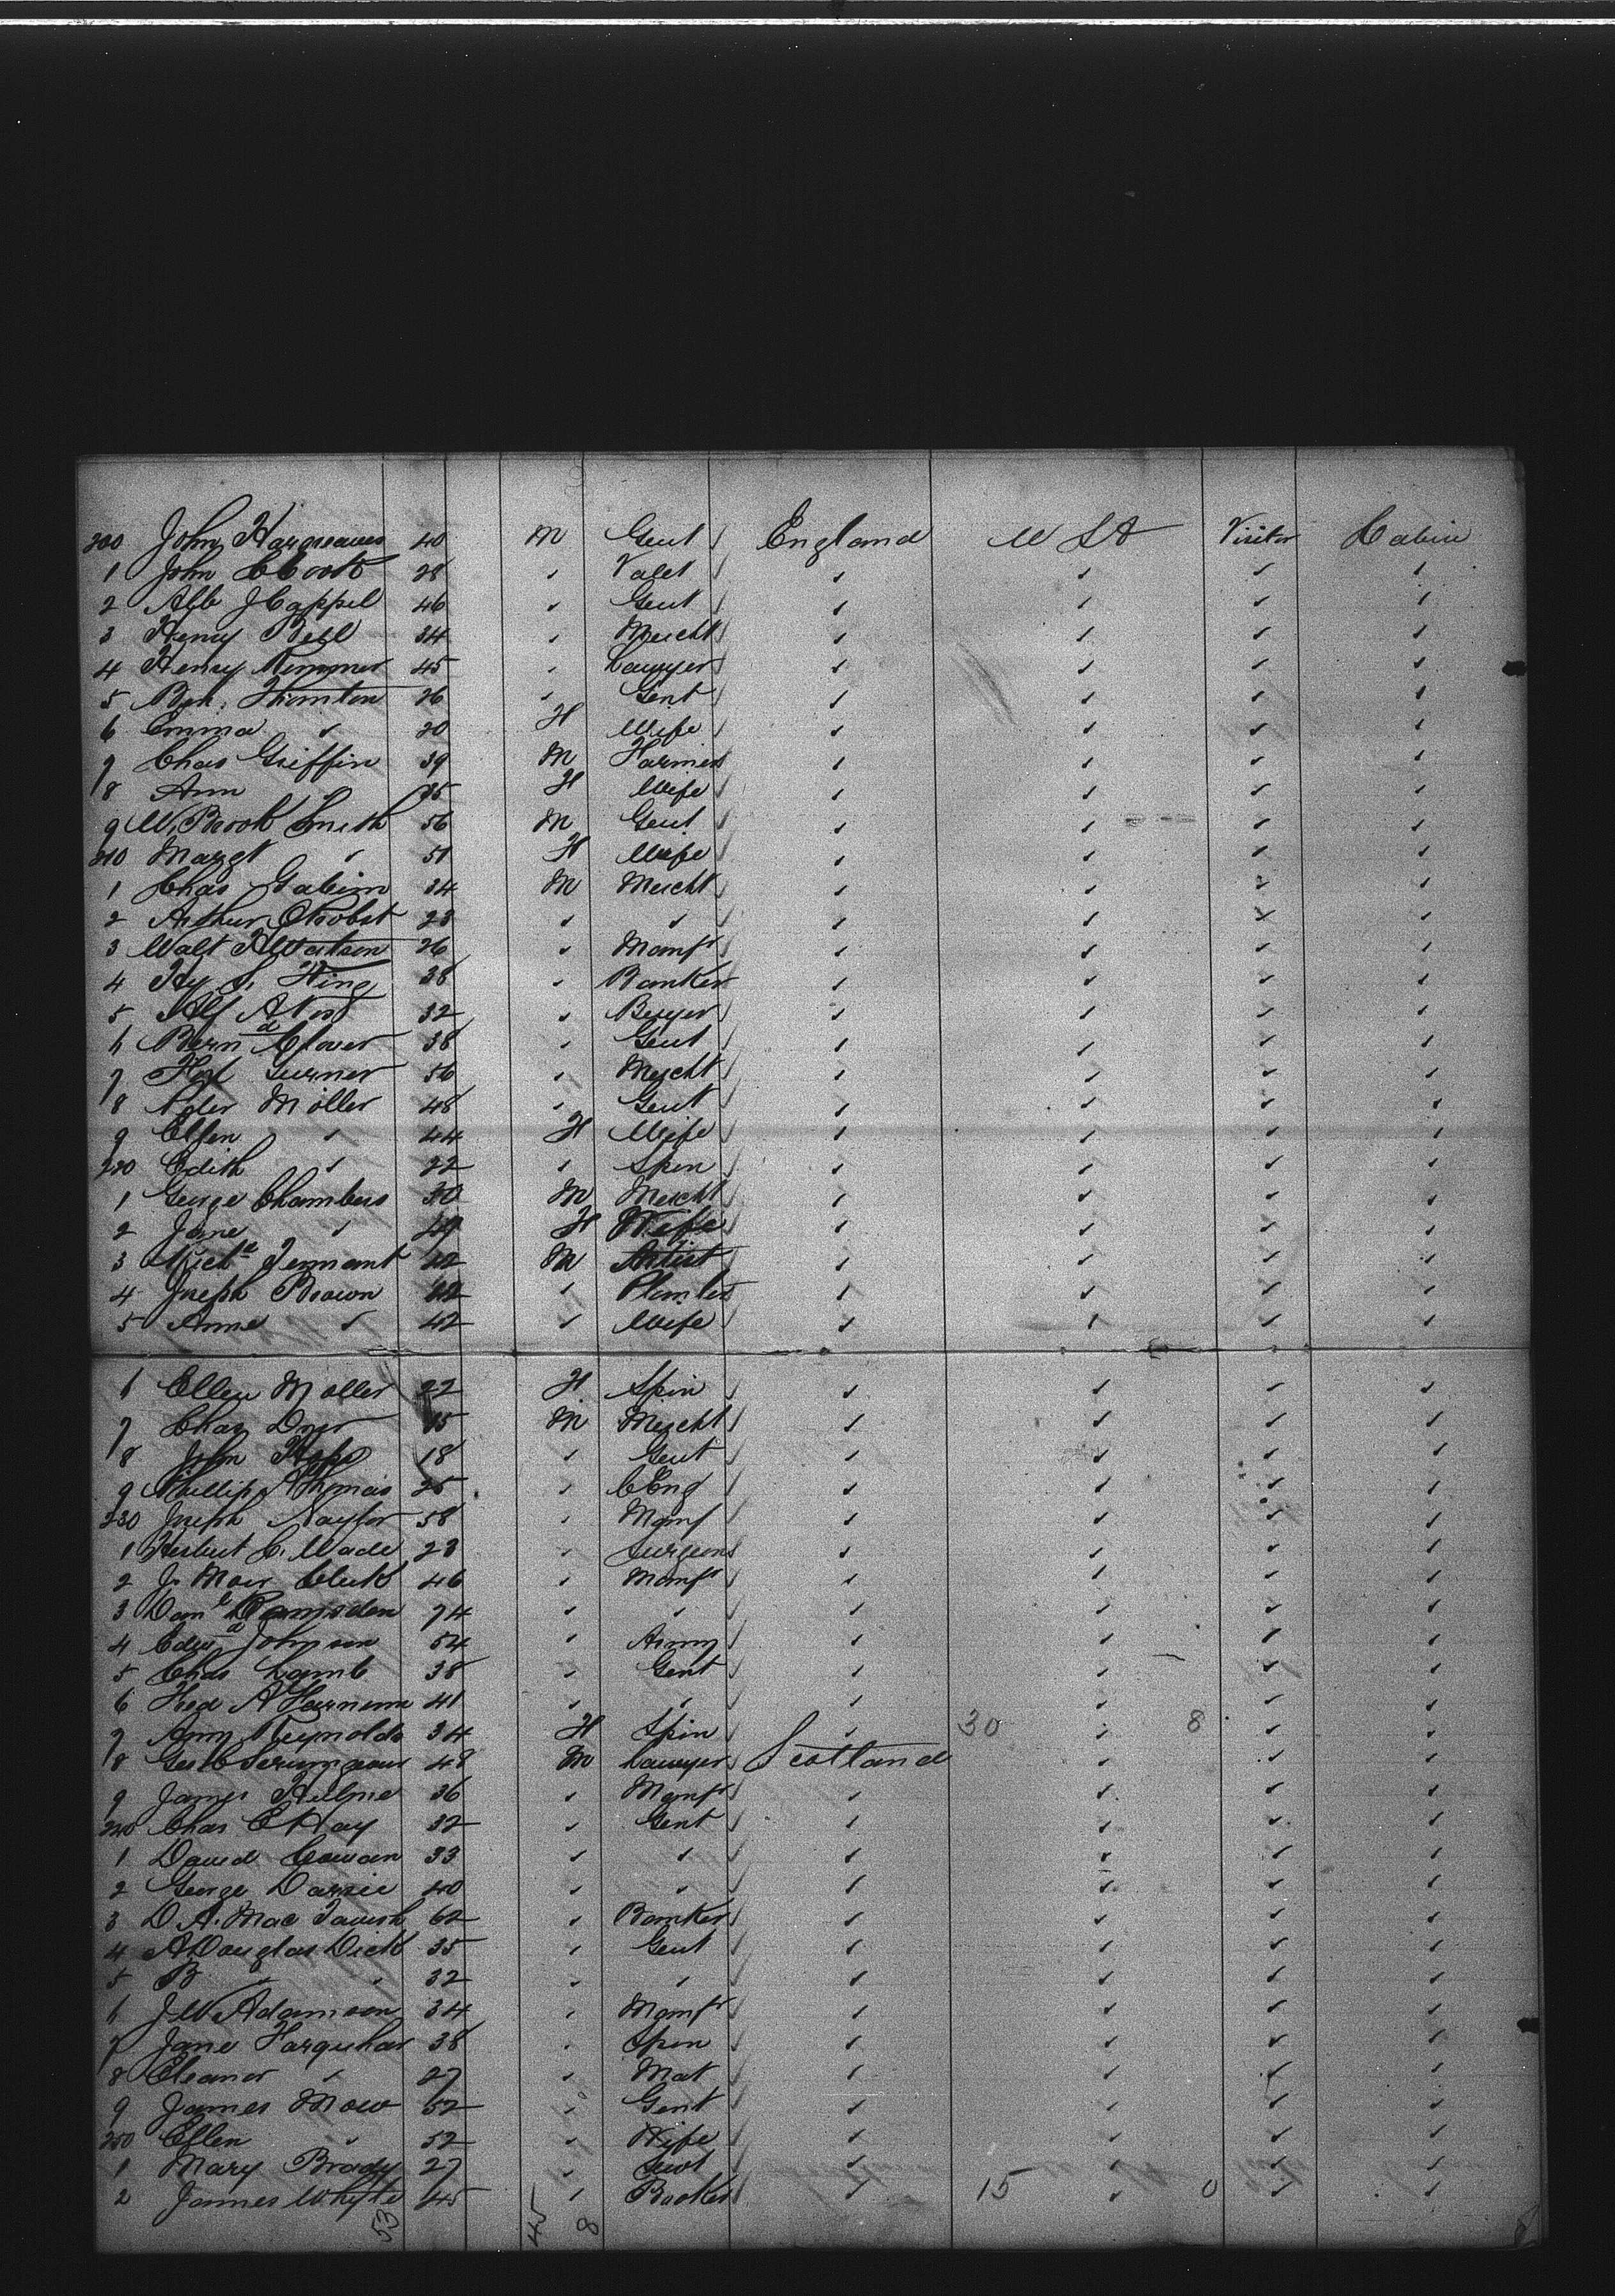 200 John Hargreaves 40 M Gent England U S A Visitor Cabin
1 John C Cook 28 " Valet " " " "
2 Alb J Cappel 46 " Gent " " " "
3 Henry Bell 34 " Mercht " " " "
4 Henry Rimmer 45 " Lawyer " " " "
5 Ben. Thornton 26 " Gent " " " "
6 Emma " 20 F Wife " " " "
7 Chas Griffin 39 M Farmer " " " "
8 Ann " 35 F Wife " " " "
9 W. Brook Smith 56 M Gent " " " "
210 Margt " 51 F Wife " " " "
1 Chas 34 M Mercht " " " "
2 Arthur 23 " " " " " "
3 Walt H Watson 26 " Manfr " " " "
4 Hy S. King 38 " Banker " " " "
5 Alf A 32 " Buyer " " " "
6 Bernd Glover 38 " Gent " " " "
7 56 " Mercht " " " "
8 Peter Möller 48 " Gent " " " "
9 Ellen " 44 F Wife " " " "
220 Edith " 22 " Spin " " " "
1 George Chambers 30 M Mercht " " " "
2 Jane " 29 F Wife " " " "
3 Tennant 22 M Artist " " " "
4 Joseph Brown Planter " " " "
5 Anne " 42 " Wife " " " "
6 Ellen Moller 22 F Spin " " " "
7 Chas M Mercht " " " "
8 John 18 " Gent " " " "
9 Phillip Thomas 25 " C Eng " " " "
230 Joseph Naylor 58 " Manf " " " "
1 Herbert C. Wade 23 " Surgeon " " " "
2 46 " Manfr " " " "
3 Danl Ramsden 74 " " " " " "
4 Edwd Johnson 54 " Army " " " "
5 Chas Lamb 38 " Gent " " " "
6 Fred A 41 " " " " " "
7 Amy Reynolds 34 F Spin " 30 " 8 " "
8 Geo Scrimgeour 48 M Lawyer Scotland " " "
9 James Hulme 36 " Manfr " " " "
240 Chas E Hay 32 " Gent " " " "
1 David Cowan 33 " " " " " "
2 George Darsie 40 " " " " " "
3 D A. Mac Tavish 62 " Banker " " " "
4 A Douglas Dick 35 " Gent " " " "
5 B " " 32 " " " " " "
6 J W Adamson 34 " Manfr " " " "
7 Jane Farquhar 38 " Spin " " " "
8 Eleanor " 27 " Mat " " " "
9 James Mow 52 " Gent " " " "
250 Ellen " 52 " Wife " " " "
1 Mary Brady 27 " Servt " " " "
2 James Whyte 45 " " 15 " 0 " "
53 45 8